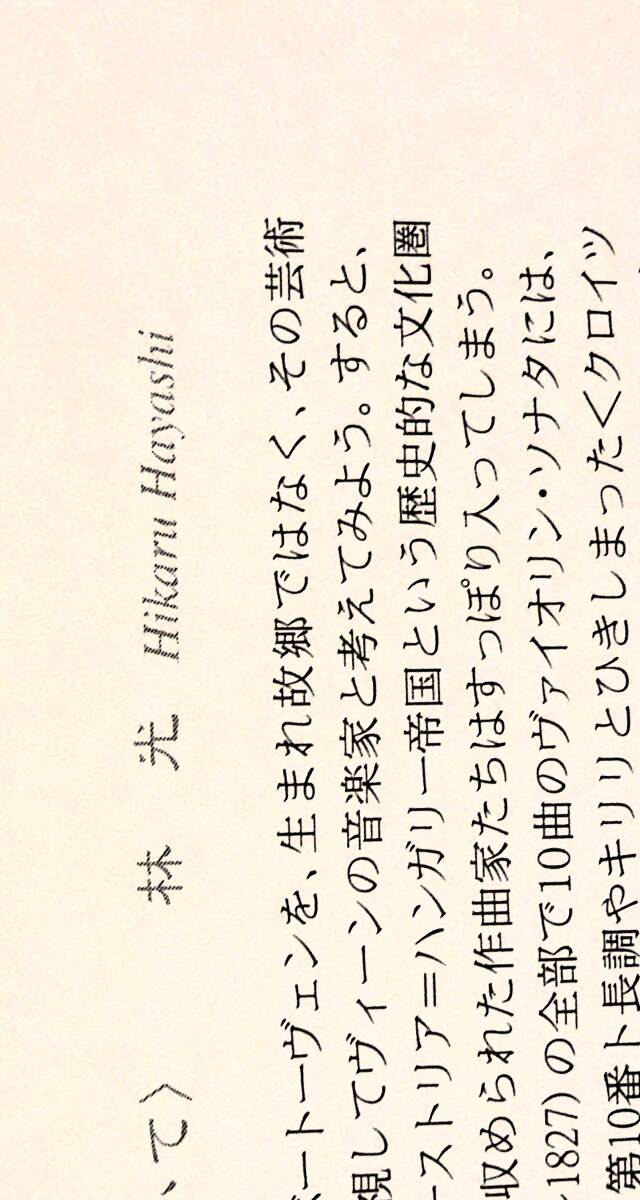 いて〉 林 光 Hikaru Hayashi
ートーヴェンを、生まれ故郷ではなく、その芸術
視してヴィーンの音楽家と考えてみよう。すると、
ーストリア＝ハンガリー帝国という歴史的な文化圏
収められた作曲家たちはすっぽり入ってしまう。
1827）の全部で10曲のヴァイオリン・ソナタには、
第10番ト長調やキリリとひきしまった〈クロイツ